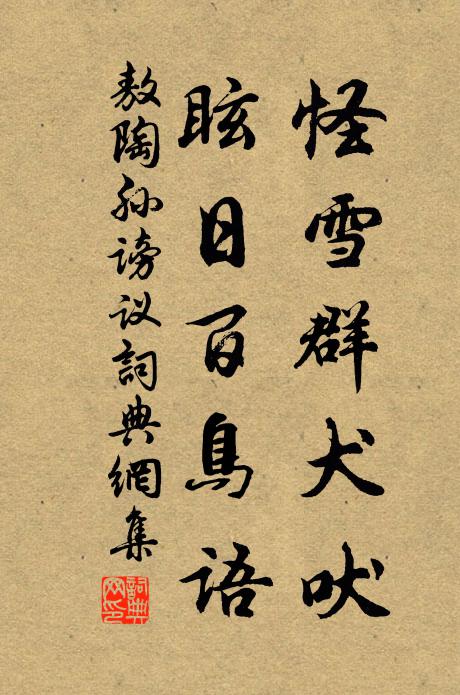 怪雪群犬吠
眩日百鳥語
敖陶孙謗议詞典網集
詞典网印